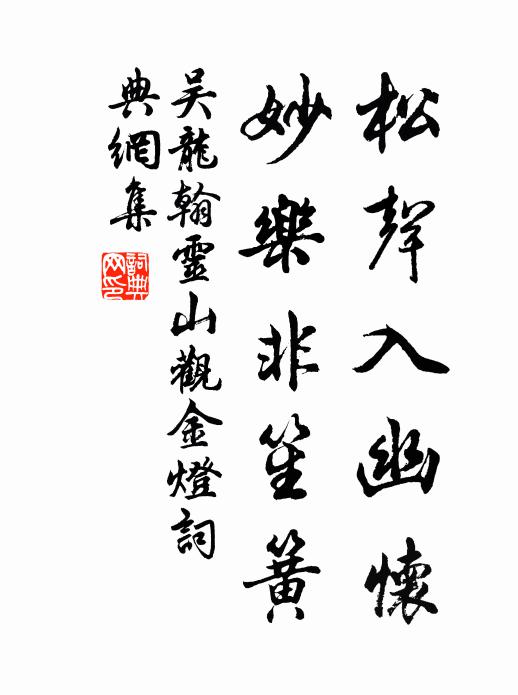 松聲入幽懷
妙樂非笙簧
吳龍翰靈山觀金燈詞
典網集
詞典网印